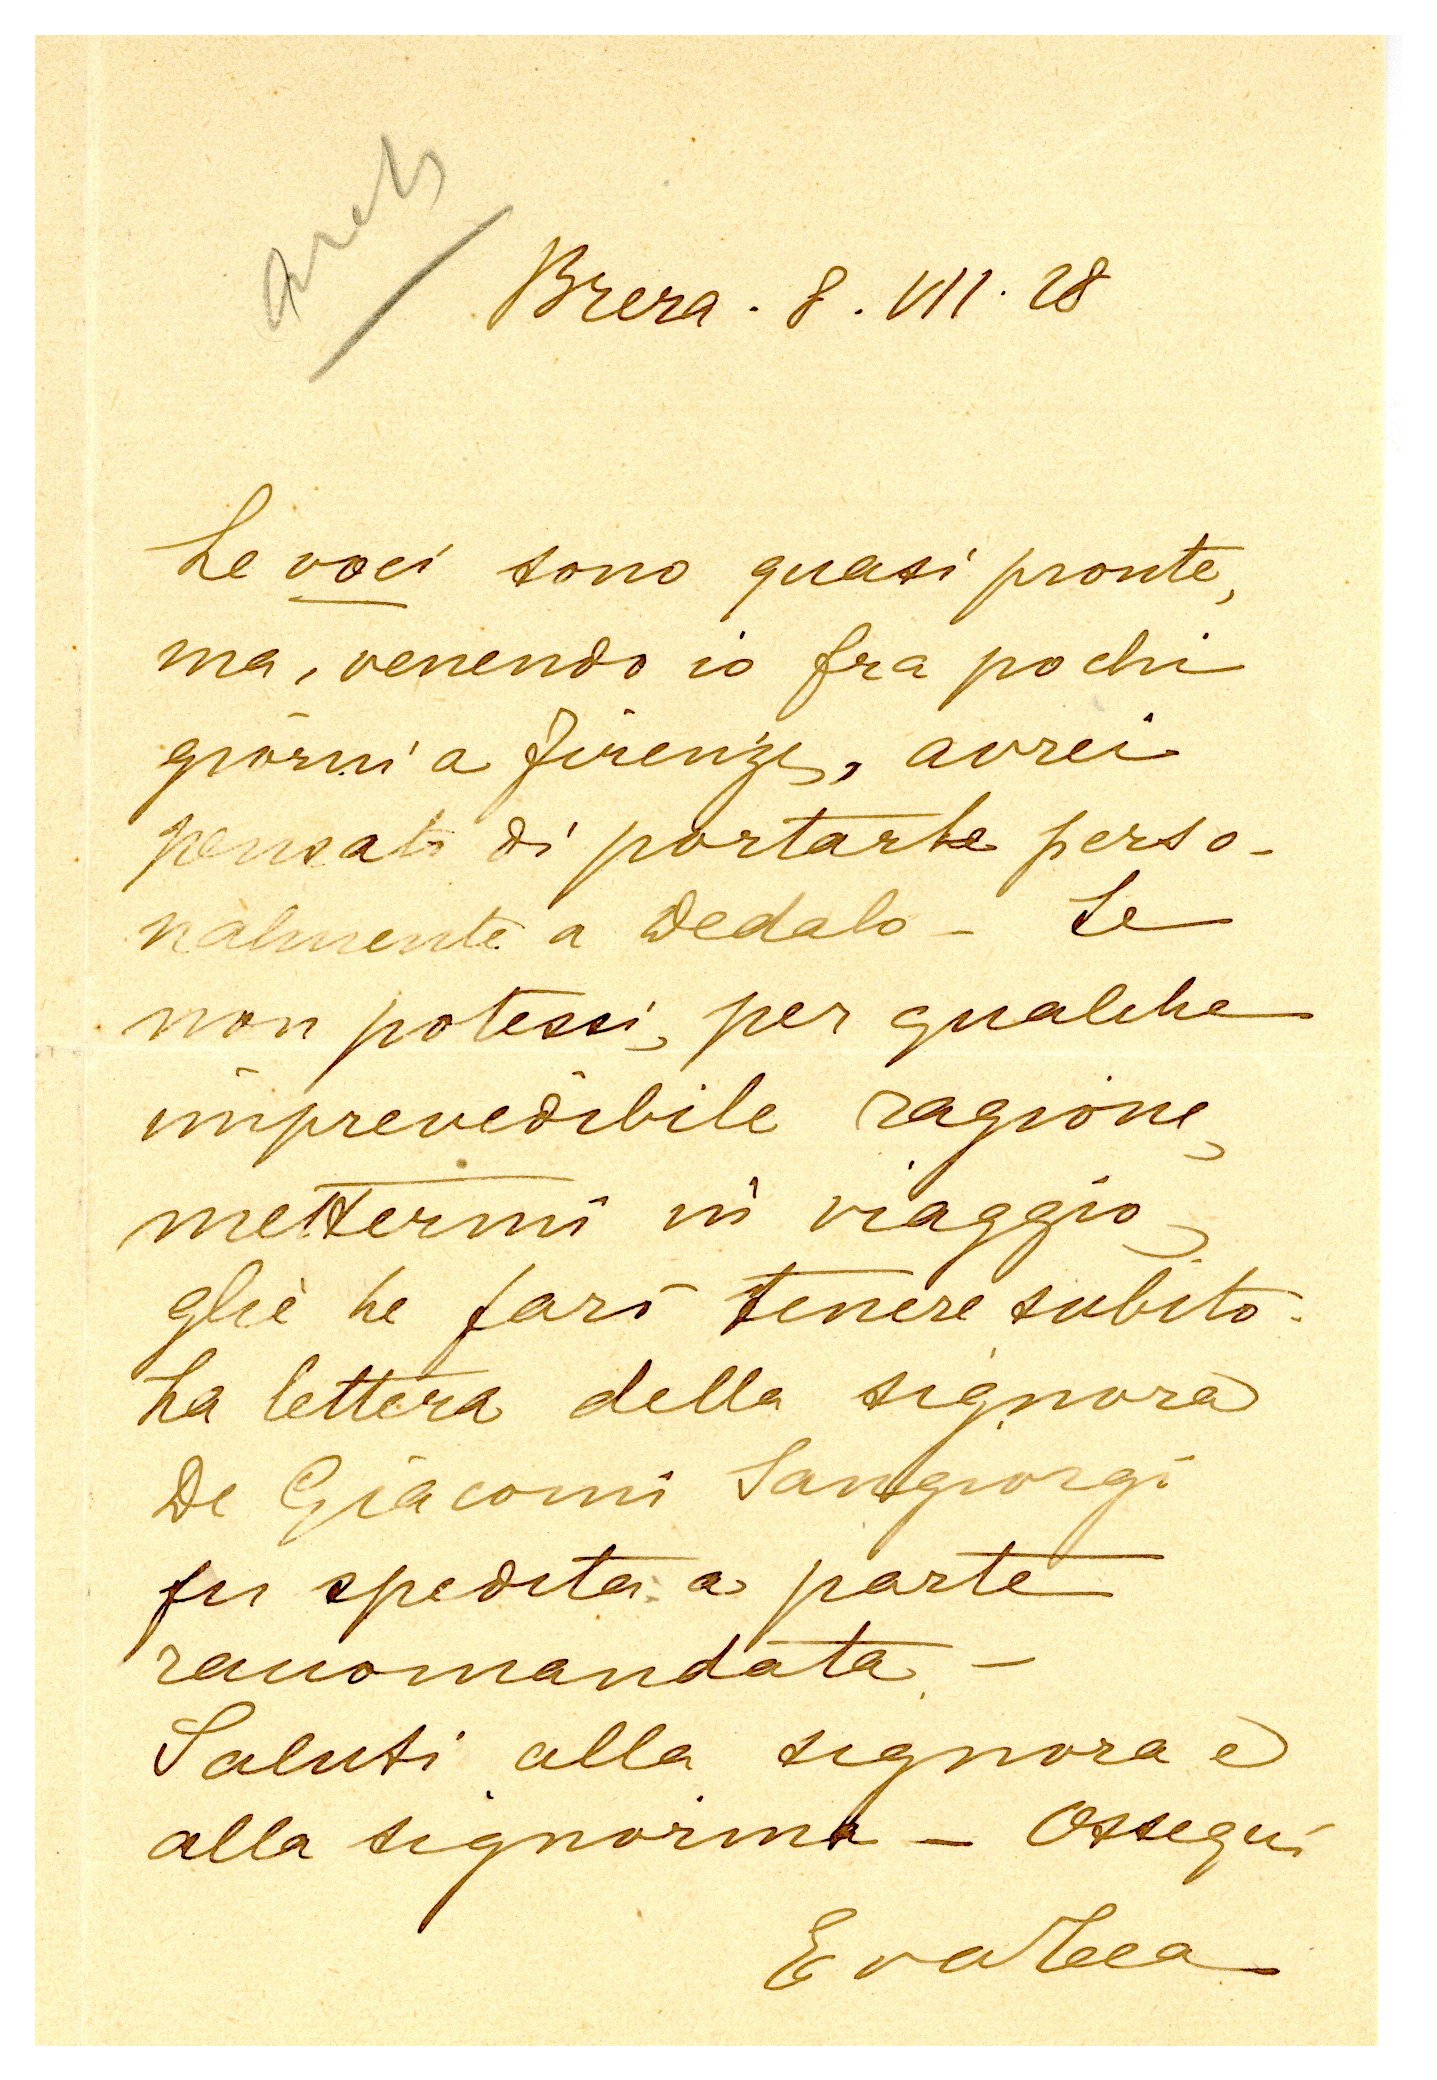 Brera. 8. VII. 28
Le voci sono quasi pronte,
ma, venendo io fra pochi
giorni a Firenze, avrei
pensato di portarle perso-
nalmente a Dedalo - Se
non potessi, per qualche
imprevedibile ragione,
mettermi in viaggio,
gliele farò tenere subito.
La lettera della signora
De Giacomi Sangiorgi
fu spedita a parte
raccomandata -
Saluti alla signora e
alla signorina - Ossequi
Eva Tea